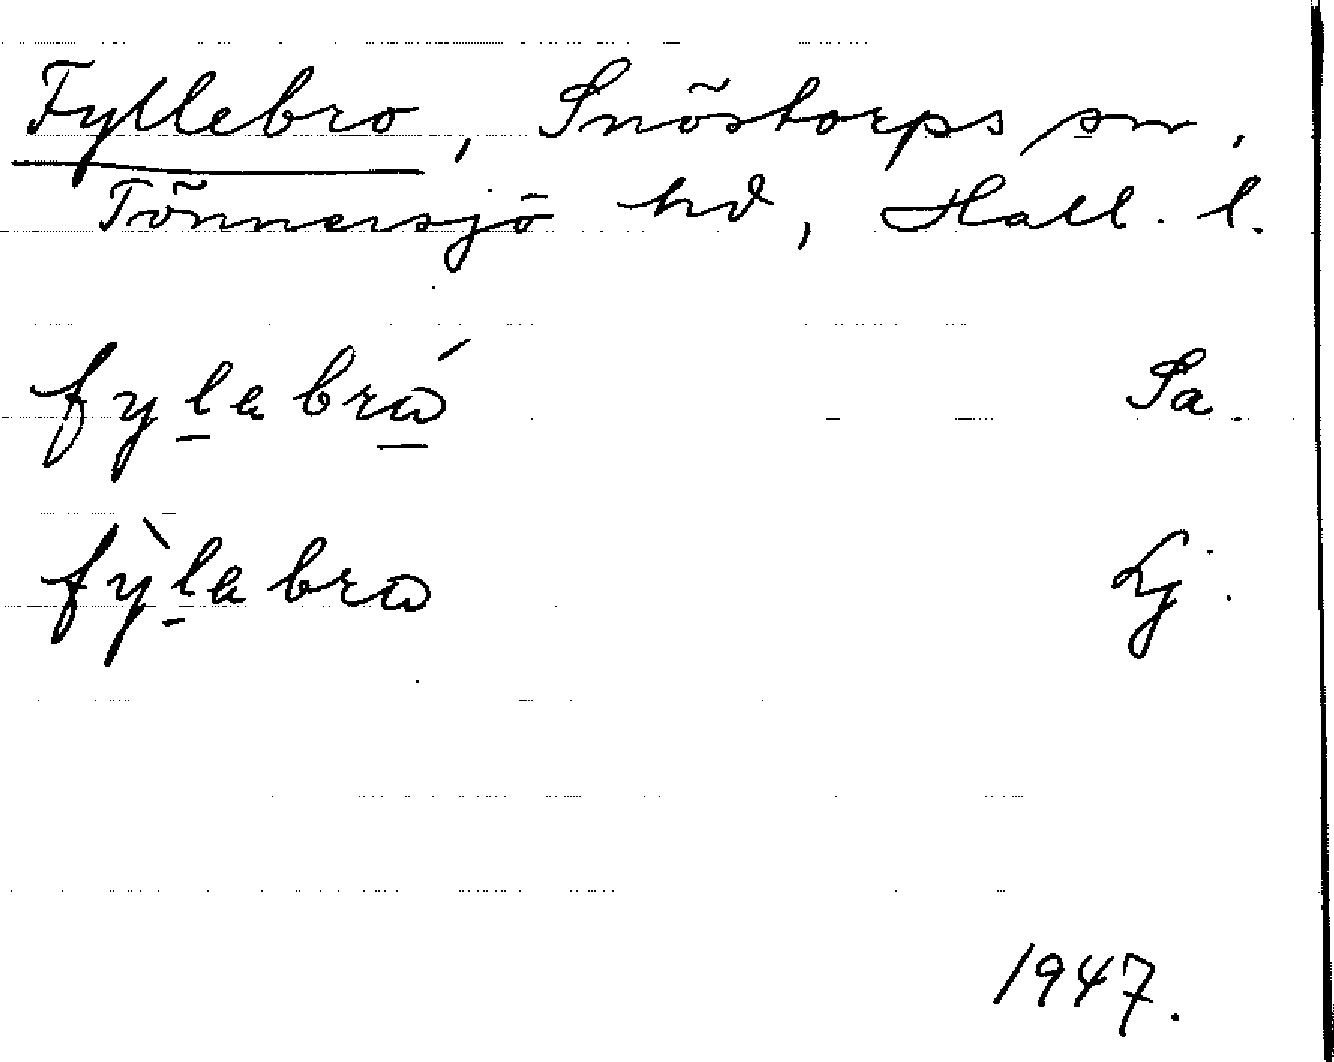 Fyllebro, Snöstorps sn,
Tönnersjö hd, Hall. l.
fy̠lebrώ̠ Sa.
fỳl̠ebrω Lj.
1947.